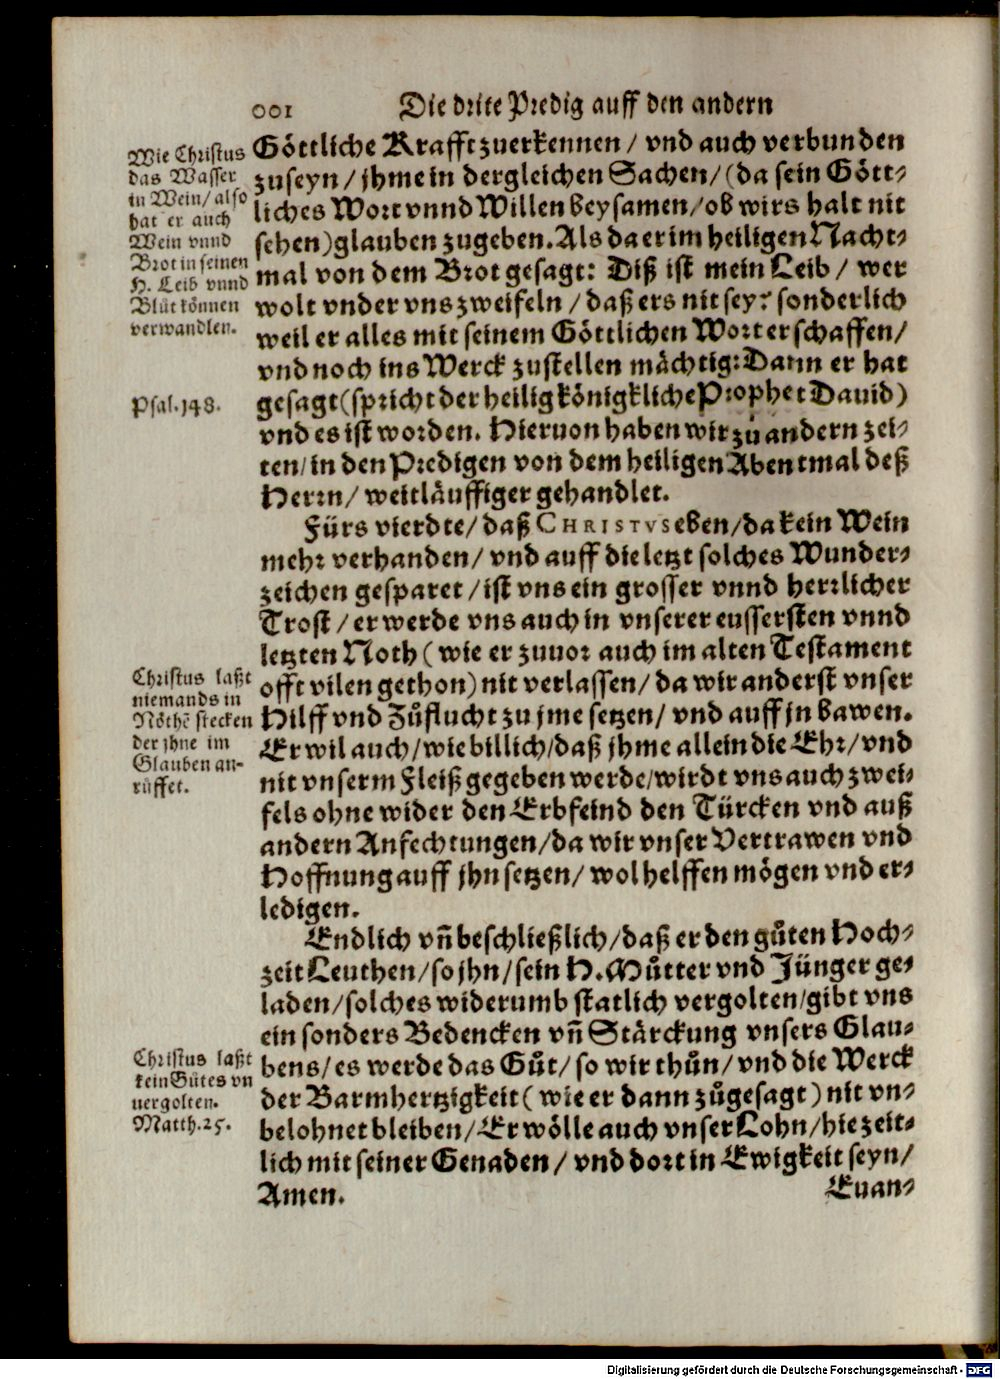 001 Die drite Predig auff den andern
Wie Christus
das Wasser
in Wein/ also
hat er auch
Wein vnnd
Brot in seinen
H. Leib vnnd
Blůt können
verwandlen.
Göttliche Krafft zuerkennen / vnd auch verbunden
zuseyn / jhme in dergleichen Sachen / (da sein Gött-
liches Wort vnnd Willen beysamen / ob wirs halt nit
sehen) glauben zugeben. Als da er im heiligen Nacht-
mal von dem Brot gesagt: Diß ist mein Leib / wer
wolt vnder vns zweifeln / daß ers nit sey? sonderlich
weil er alles mit seinem Göttlichen Wort erschaffen /
vnd noch ins Werck zustellen mächtig: Dann er hat
Psal. 148.
gesagt (spricht der heilig königkliche Prophet Dauid)
vnd es ist worden. Hieruon haben wir zů andern zei-
ten / in den Predigen von dem heiligen Abentmal deß
Herrn / weitläuffiger gehandlet.
Fürs vierdte / daß CHRISTVS eben / da kein Wein
mehr verhanden / vnd auff die letzt solches Wunder-
zeichen gesparet / ist vns ein grosser vnnd herrlicher
Trost / er werde vns auch in vnserer eussersten vnnd
letzten Noth (wie er zuuor auch im alten Testament
Christus laßt
niemands in
Nöthē stecken
der jhne im
Glauben an-
rüffet.
offt vilen gethon) nit verlassen / da wir anderst vnser
Hilff vnd Zůflucht zu jme setzen / vnd auff jn bawen.
Er wil auch / wie billich / daß jhme allein die Ehr / vnd
nit vnserm Fleiß gegeben werde / wirdt vns auch zwei-
fels ohne wider den Erbfeind den Türcken vnd auß
andern Anfechtungen / da wir vnser Vertrawen vnd
Hoffnung auff jhn setzen / wol helffen mögen vnd er-
ledigen.
Endlich vn̄ beschließlich / daß er den gůten Hoch-
zeit Leuthen / so jhn / sein H. Můtter vnd Jünger ge-
laden / solches widerumb statlich vergolten / gibt vns
ein sonders Bedencken vn̄ Stärckung vnsers Glau-
Christus laßt
kein Gůtes vn
uergolten.
Matth. 25.
bens / es werde das Gůt / so wir thůn / vnd die Werck
der Barmhertzigkeit (wie er dann zůgesagt) nit vn-
belohnet bleiben / Er wölle auch vnser Lohn / hie zeit-
lich mit seiner Genaden / vnd dort in Ewigkeit seyn /
Amen.
Euan-
Digitalisierung gefördert durch die Deutsche Forschungsgemeinschaft - DFG